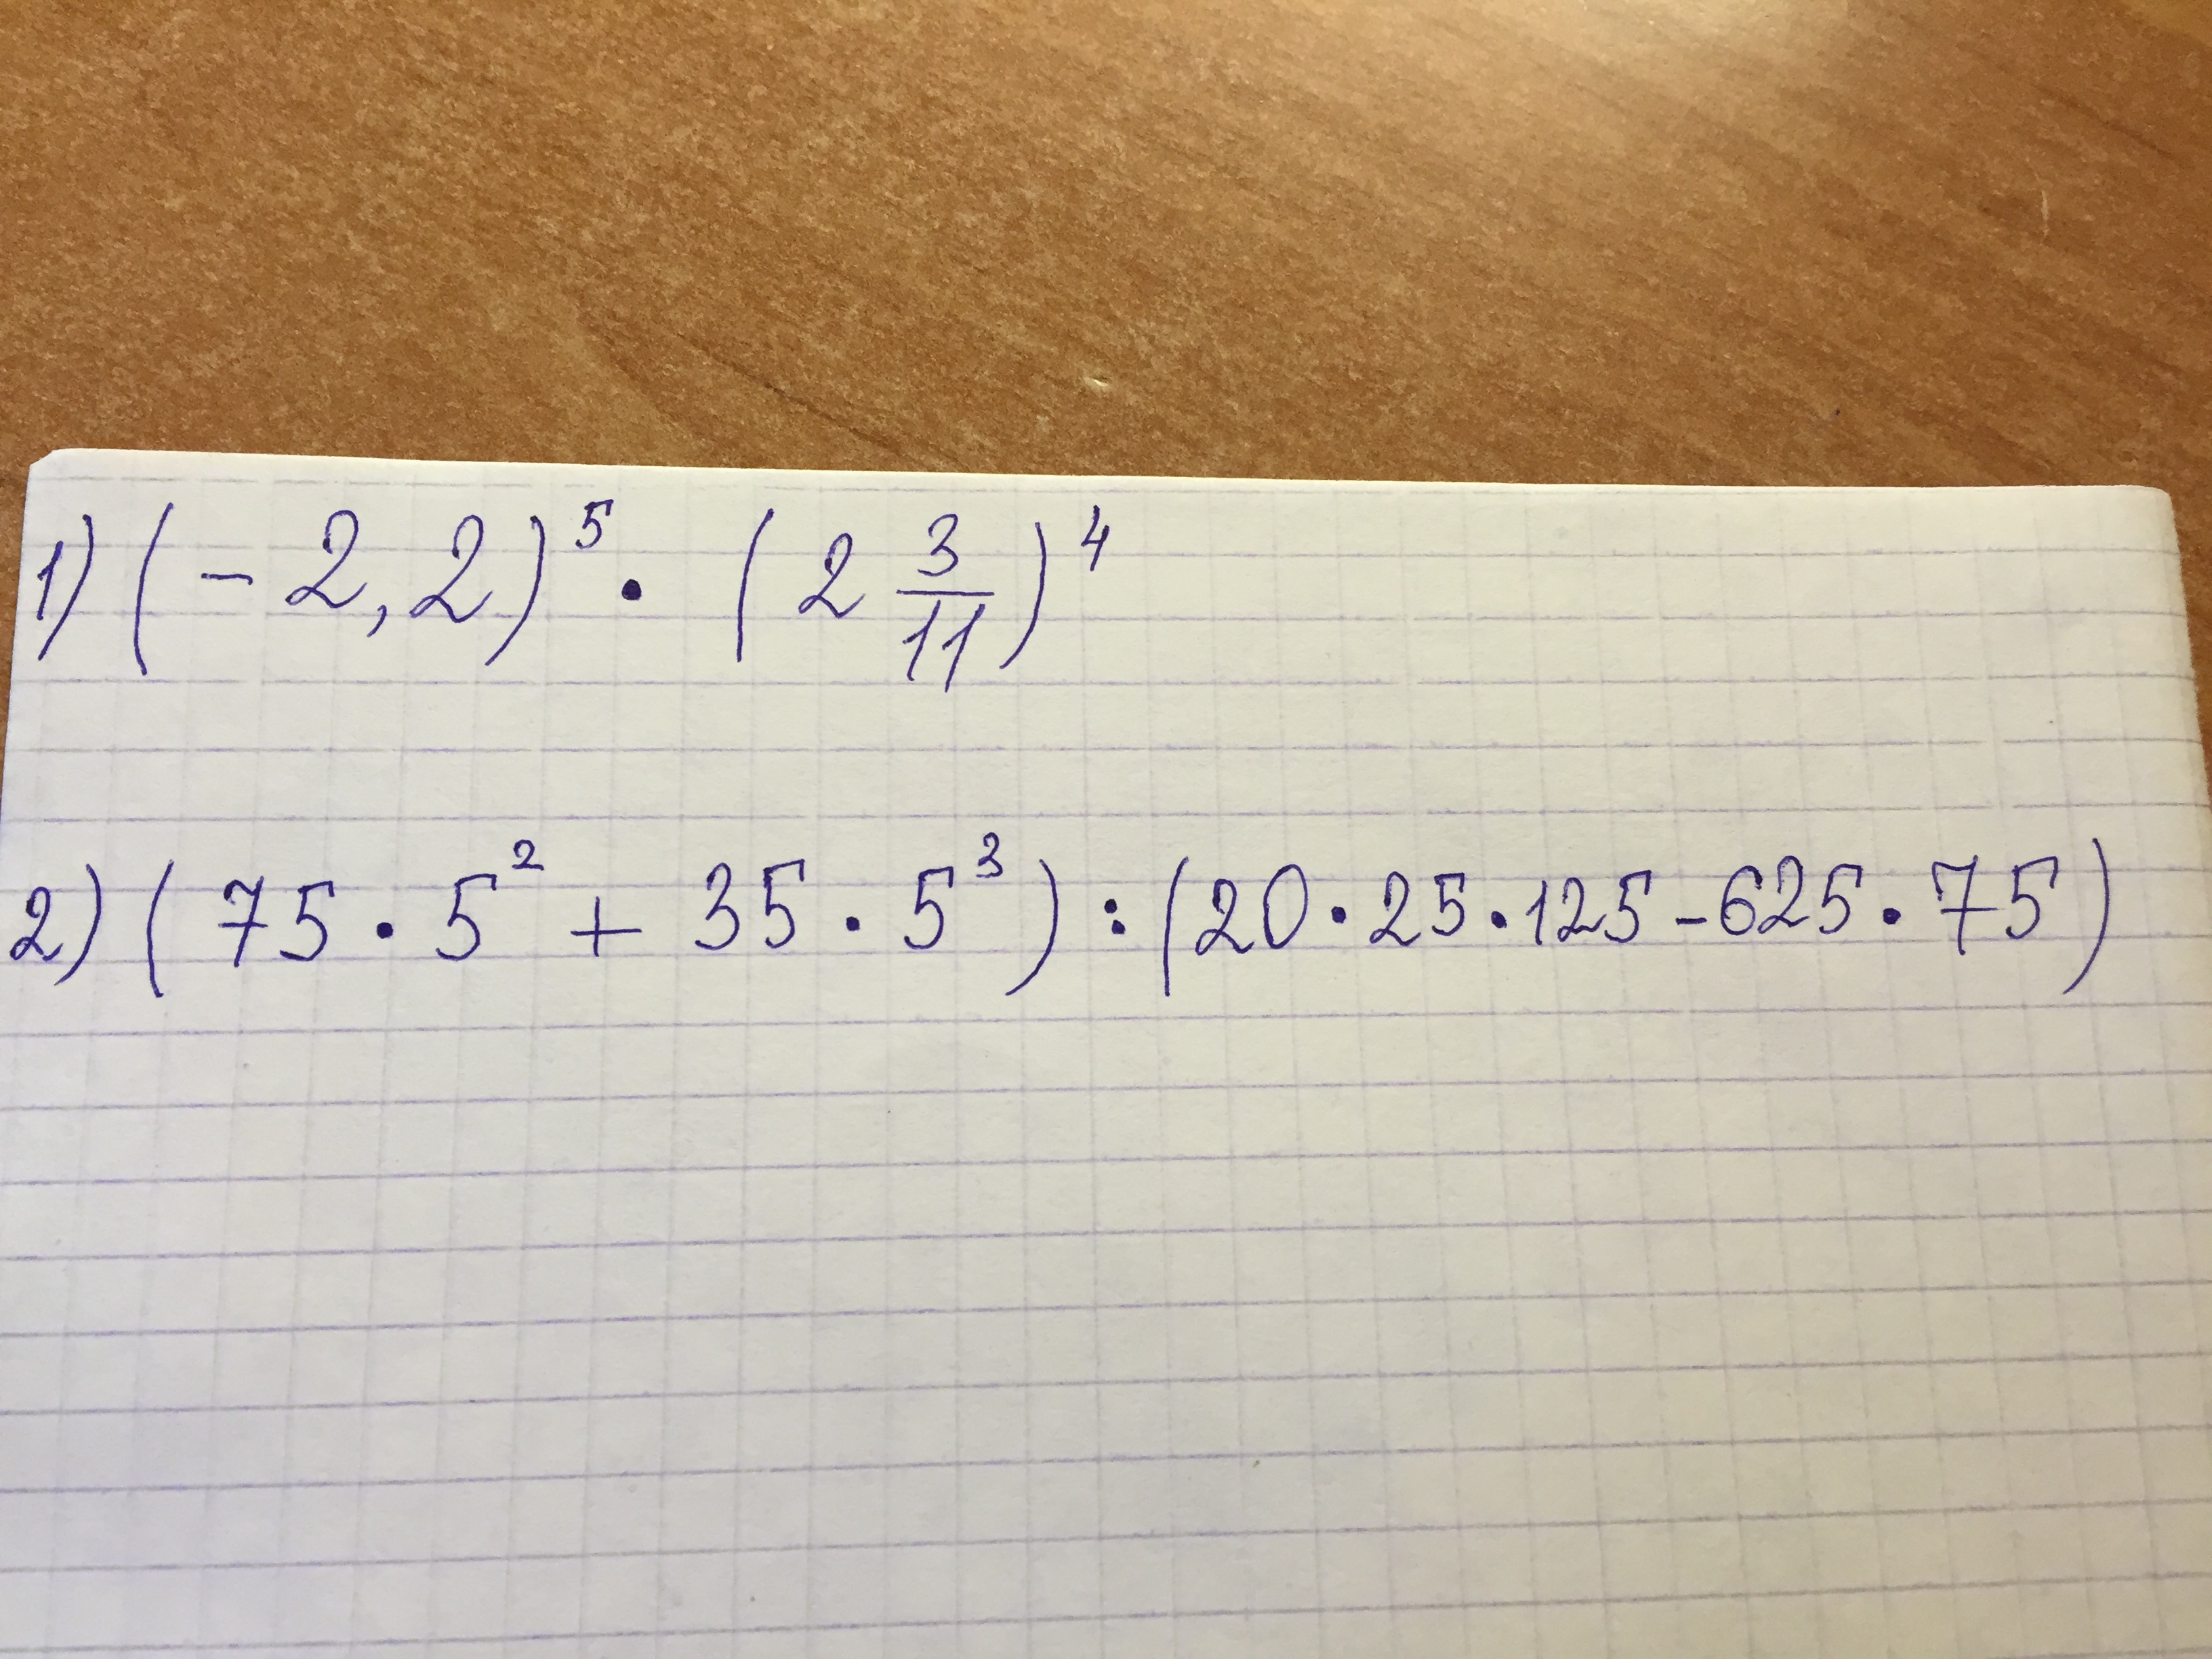 1) (-2,2)⁵ · (2 3/11)⁴
2) (75 · 5² + 35 · 5³) : (20 · 25 · 125 - 625 · 75)